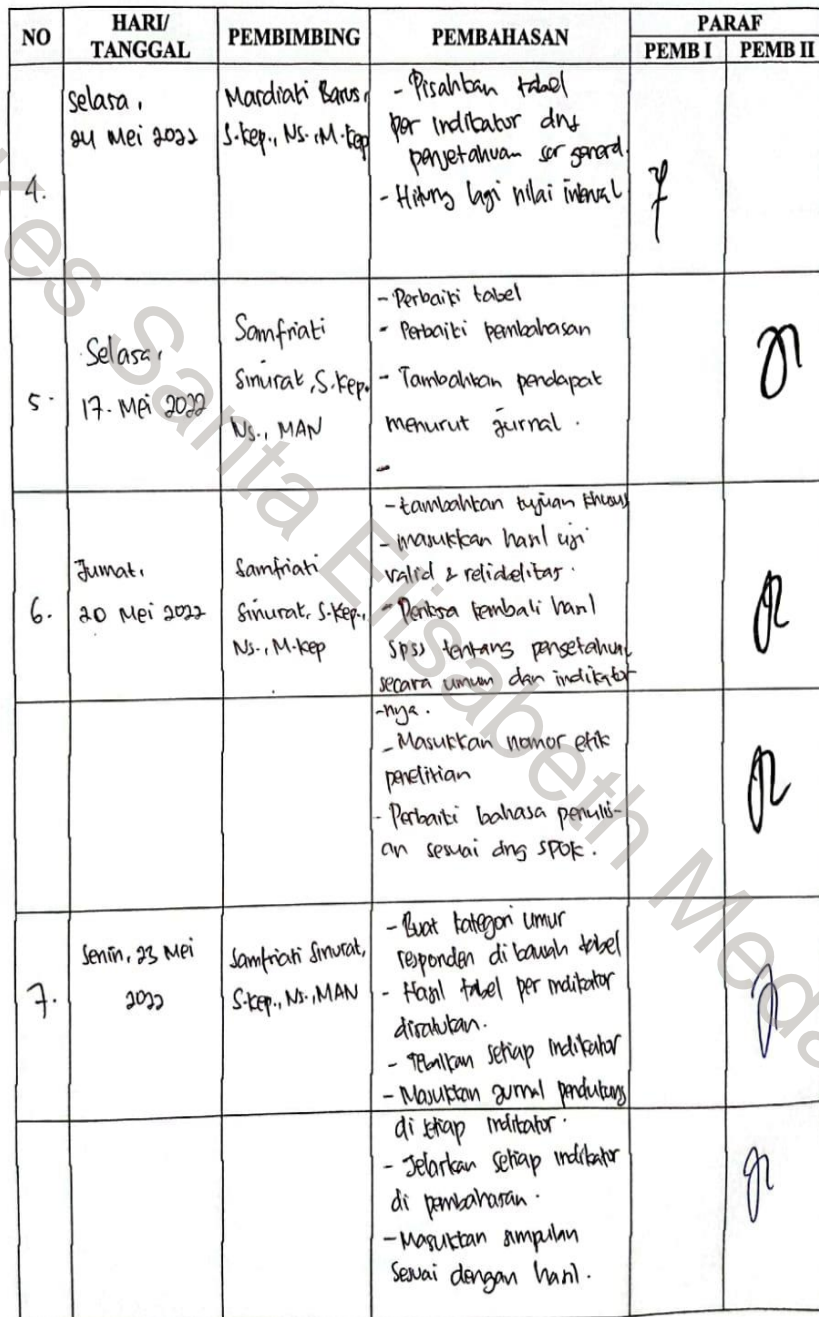 NO
HARI/
TANGGAL
PEMBIMBING
PEMBAHASAN
PARAF
PEMB I
PEMB II
4.
Selasa,
24 Mei 2022
Mardiati Barus,
S.Kep., Ns., M.Kep
- Pisahkan tabel
per Indikator dng
pengetahuan scr general.
- Hitung lagi nilai interval
5.
Selasa,
17. Mei 2022
Samfriati
Sinurat, S.Kep.
Ns., MAN
- Perbaiki tabel
- Perbaiki pembahasan
- Tambahkan pendapat
menurut jurnal.
-
6.
Jumat,
20 Mei 2022
Samfriati
Sinurat, S.Kep.,
Ns., M.Kep
- tambahkan tujuan khusus
- masukkan hasil uji
valid & relidelitas.
- Periksa kembali hasil
SPSS tentang pengetahuan
secara umum dan indikator
-nya.
- Masukkan nomor etik
penelitian
- Perbaiki bahasa penulis-
an sesuai dng SPOK.
7.
Senin, 23 Mei
2022
Samfriati Sinurat,
S.Kep., Ns., MAN
- Buat kategori umur
responden di bawah tabel
- Hasil tabel per indikator
disatukan.
- Tebalkan setiap indikator
- Masukkan jurnal pendukung
di setiap indikator.
- Jelaskan setiap indikator
di pembahasan.
- Masukkan simpulan
sesuai dengan hasil.
kes Santa Elisabeth Meda